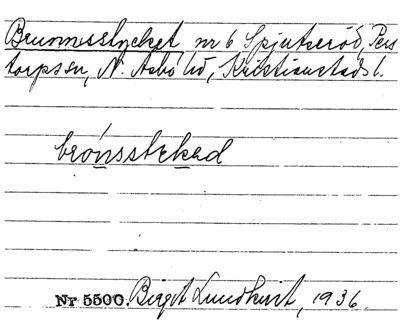 Brunnsstycket nr 6 Spjutseröd, Pers
torps sn, N. Åsbo hd, Kristianstads l.
brónsstekəd
Nr 5500. Birgit Lundkvist, 1936.